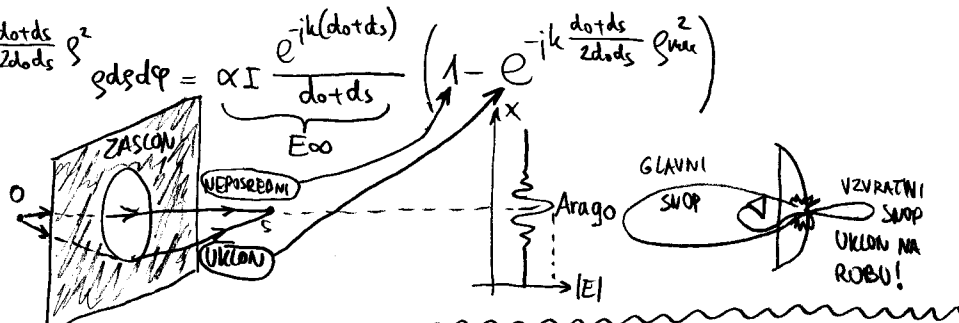 do+ds / 2dods ρ²
ρdρdφ = αI e^-jk(do+ds) / do+ds (1 - e^-jk do+ds / 2dods ρmax²)
E∞
ZASLON
O
NEPOSREDNI
S
UKLON
X
Arago
|E|
GLAVNI
SNOP
VZVRATNI
SNOP
UKLON NA
ROBU!